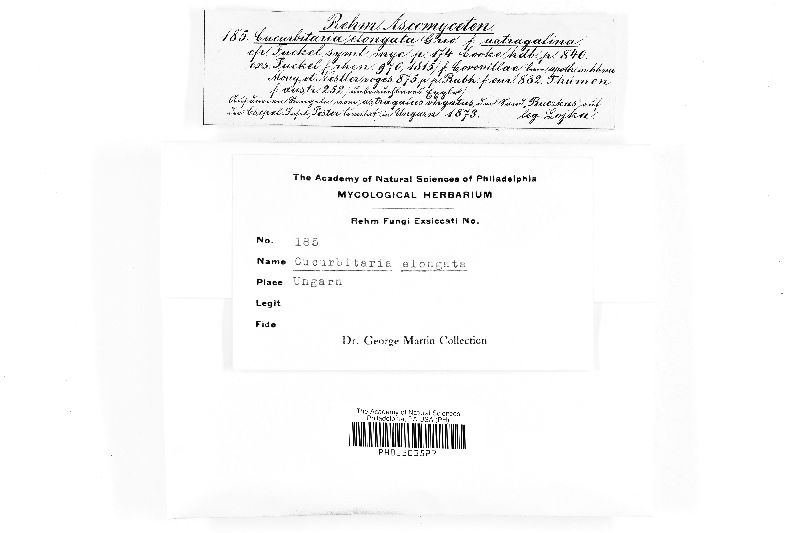 Rehm Ascomyceten
185. Cucurbitaria elongata Grev. f. astragalina
cfr. Fuckel symb. myc. p. 174 Cooke hdb. p. 840.
exs. Fuckel f. rhen. 970, 1815, f. Coronillae
Moug. et Nestler voges 875, p.p. Rabh. f. eur. 862. Thümen
f. austr. 252,
astragalus virgatus, Ruczkas auf
Pester in Ungarn 1873. leg. Lojka.
The Academy of Natural Sciences of Philadelphia
MYCOLOGICAL HERBARIUM
Rehm Fungi Exsiccati No.
No. 185
Name Cucurbitaria elongata
Place Ungarn
Legit
Fide
Dr. George Martin Collection
The Academy of Natural Sciences
Philadelphia, PA USA (PH)